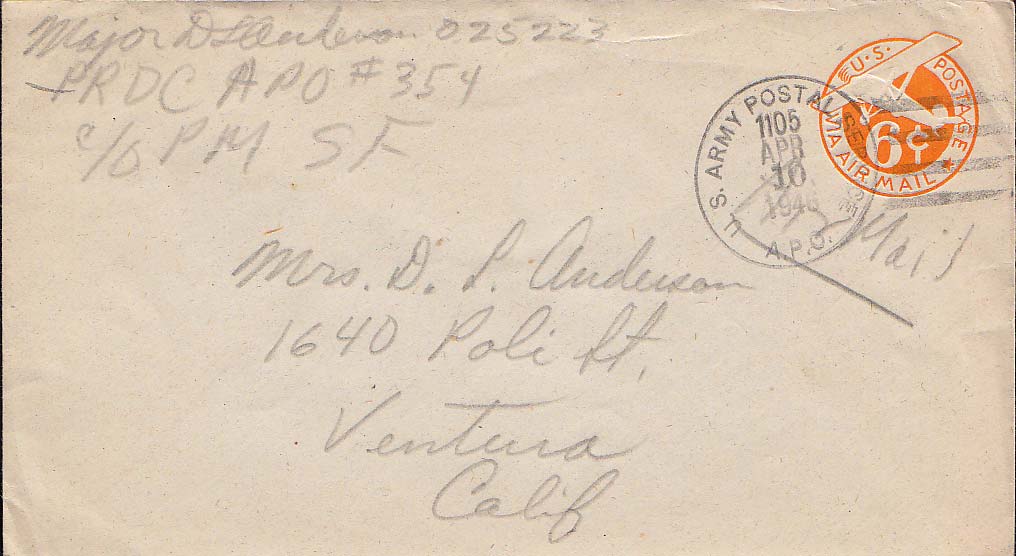 Major D L Anderson 025223
PRDC APO # 354
c/o PM SF
U.S. POSTAGE
6¢
VIA AIR MAIL
U.S. ARMY POSTAL
1105
APR
10
1946
A.P.O.
Mail
Mrs. D. L. Anderson
1640 Poli St.
Ventura
Calif